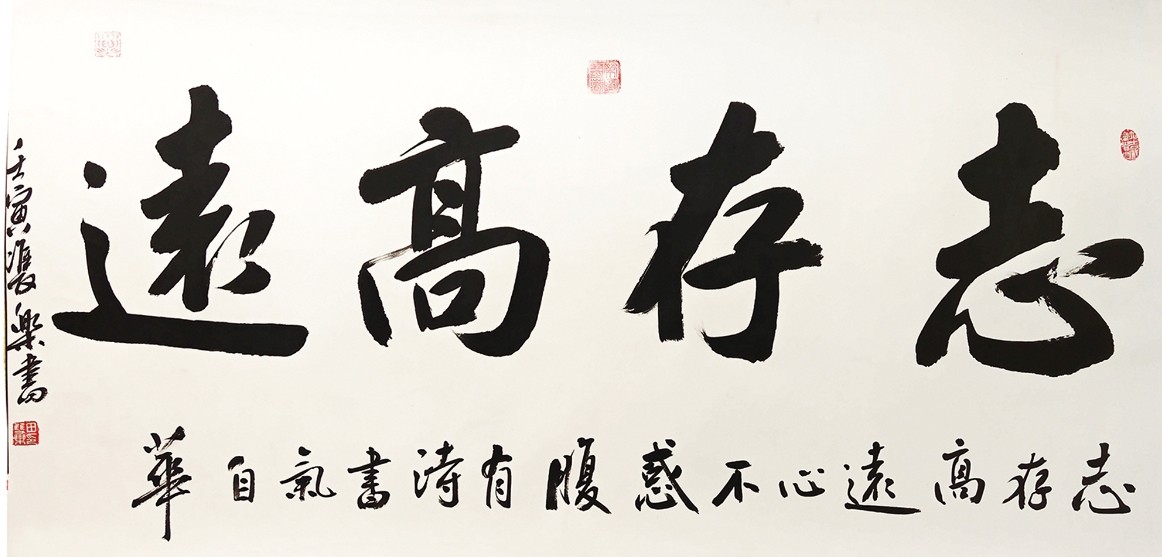 志存高遠
志存高遠心不惑腹有詩書氣自華
壬寅 樂書